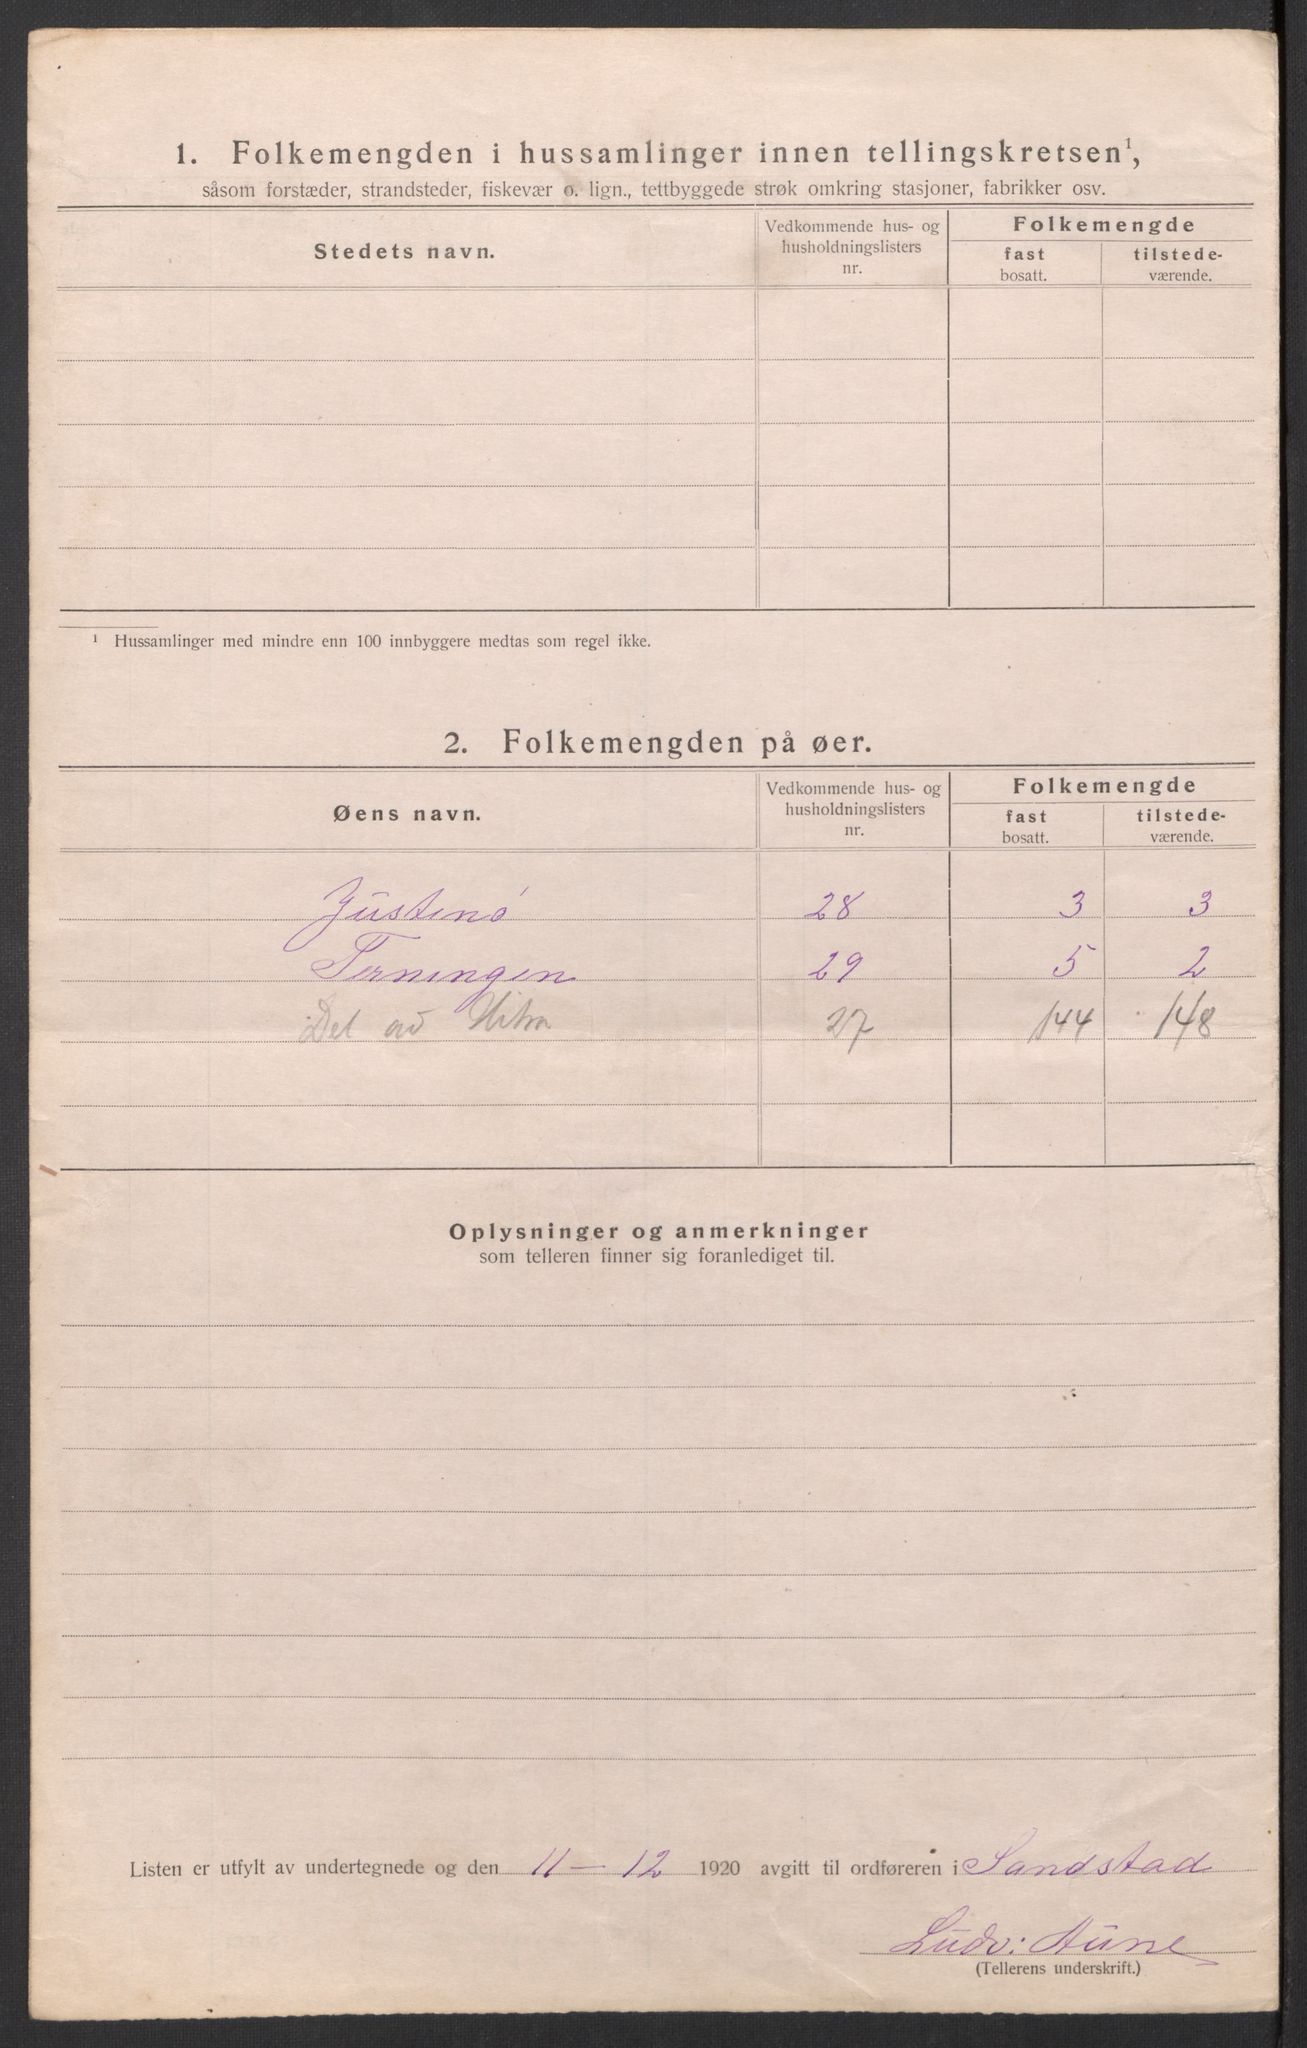 1. Folkemengden i hussamlinger innen tellingskretsen¹,
såsom forstæder, strandsteder, fiskevær o. lign., tettbyggede strøk omkring stasjoner, fabrikker osv.
Stedets navn.
Vedkommende hus- og
husholdningslisters
nr.
Folkemengde
fast
bosatt.
tilstede-
værende.
¹ Hussamlinger med mindre enn 100 innbyggere medtas som regel ikke.
2. Folkemengden på øer.
Øens navn.
Vedkommende hus- og
husholdningslisters
nr.
Folkemengde
fast
bosatt.
tilstede-
værende.
Jüstenö 28 3 3
Terningen 29 5 2
Del av Hitra 27 144 148
Oplysninger og anmerkninger
som telleren finner sig foranlediget til.
Listen er utfylt av undertegnede og den 11 – 12 1920 avgitt til ordføreren i Sandstad
Ludv: Aune
(Tellerens underskrift.)